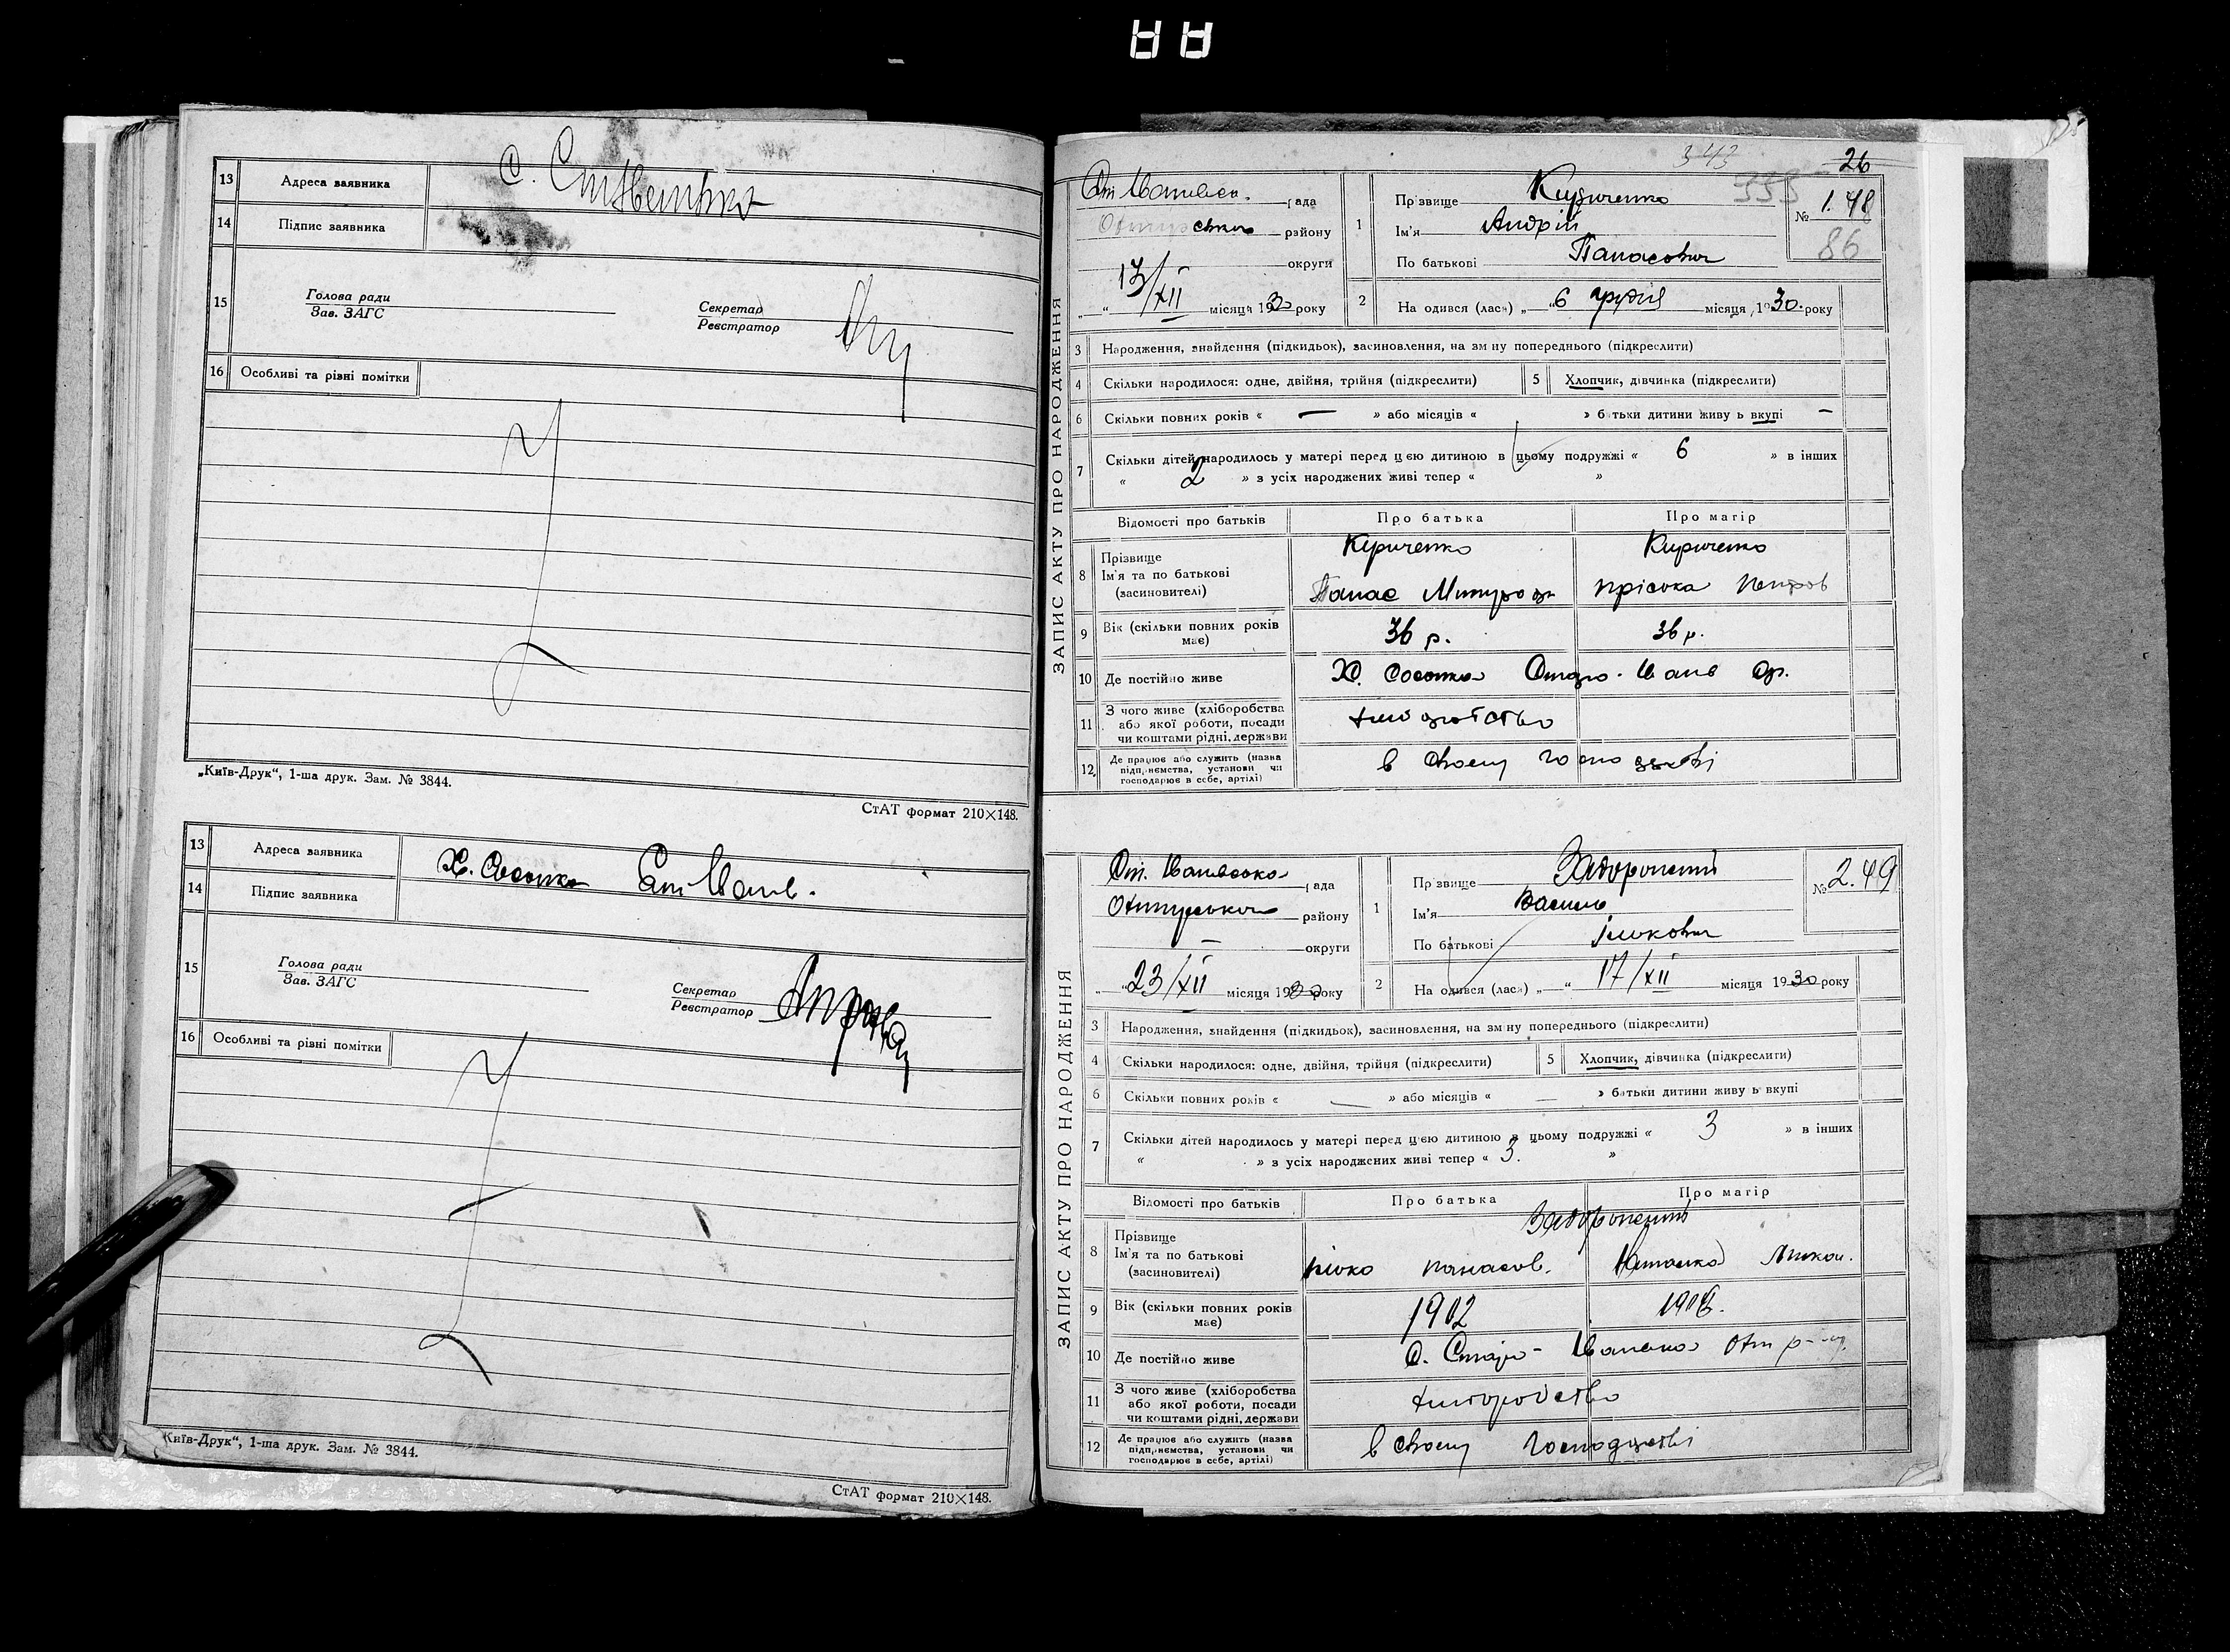 13 Адреса заявника
14 Підпис заявника
15 Голова ради
Зав. ЗАГС
Секретар
Реєстратор
16 Особливі та різні помітки
„Київ-Друк“, 1-ша друк. Зам. № 3844.
СтАТ формат 210×148.
13 Адреса заявника Х. Сосонка Ст Іванів.
14 Підпис заявника
15 Голова ради
Зав. ЗАГС
Секретар
Реєстратор
16 Особливі та різні помітки
Київ-Друк“, 1-ша друк. Зам. № 3844.
СтАТ формат 210×148.
343
26
333
ЗАПИС АКТУ ПРО НАРОДЖЕННЯ
рада
району
округи
„ “ 13/XII місяця 1930 року
1 Прізвище Кириченко
Ім'я Андрій
По батькові Панасович
№ 1.48
86
2 На одився (лася) „ “ 6 грудня місяця 1930. року
3 Народження, знайдення (підкидьок), засиновлення, на зміну попереднього (підкреслити)
4 Скільки народилося: одне, двійня, трійня (підкреслити)
5 Хлопчик, дівчинка (підкреслити)
6 Скільки повних років « — » або місяців « » батьки дитини живуть вкупі —
7 Скільки дітей народилось у матері перед цією дитиною в цьому подружжі « 6 » в інших
« 2 » з усіх народжених живі тепер « »
Відомості про батьків Про батька Про матір
8 Прізвище Кириченко Кириченко
Ім'я та по батькові
(засиновителі) Панас Митроф Пріська Петров
9 Вік (скільки повних років має) 36 р. 36 р.
10 Де постійно живе Х. Сосонка Старо-Іванів Ор.
11 З чого живе (хліборобства
або якої роботи, посади
чи коштами рідні, держави хліборобство
12 Де працює або служить (назва
підприємства, установи чи
господарює в себе, артілі) в своєму господарстві
ЗАПИС АКТУ ПРО НАРОДЖЕННЯ
Ст. Іванівська рада
району
— округи
„ “ 23/XII місяця 1930 року
1 Прізвище
Ім'я Василь
По батькові Ількович
№ 2.49
2 На одився (лася) „ “ 17/XII місяця 1930 року
3 Народження, знайдення (підкидьок), засиновлення, на зміну попереднього (підкреслити)
4 Скільки народилося: одне, двійня, трійня (підкреслити)
5 Хлопчик, дівчинка (підкреслити)
6 Скільки повних років « — » або місяців « — » батьки дитини живуть вкупі
7 Скільки дітей народилось у матері перед цією дитиною в цьому подружжі « 3 » в інших
« » з усіх народжених живі тепер « 3. »
Відомості про батьків Про батька Про матір
8 Прізвище
Ім'я та по батькові
(засиновителі) Ілько Панасов.
9 Вік (скільки повних років має) 1902
10 Де постійно живе С. Старо-Іванівка
11 З чого живе (хліборобства
або якої роботи, посади
чи коштами рідні, держави хліборобство
12 Де працює або служить (назва
підприємства, установи чи
господарює в себе, артілі) в своєму господарстві